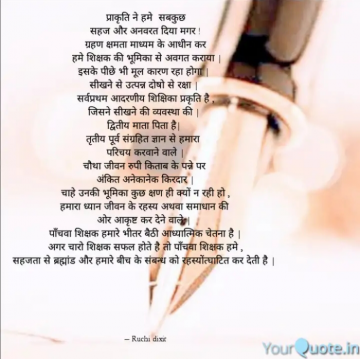 प्राकृति ने हमे  सबकुछ
सहज और अनवरत दिया मगर !
ग्रहण क्षमता माध्यम के आधीन कर
हमे शिक्षक की भूमिका से अवगत कराया |
इसके पीछे भी मूल कारण रहा होगा |
सीखने से उत्पन्न दोषो से रक्षा |
सर्वप्रथम आदरणीय शिक्षिका प्रकृति है ,
जिसने सीखने की व्यवस्था की |
द्वितीय माता पिता है|
तृतीय पूर्व संग्रहित ज्ञान से हमारा
परिचय करवाने वाले |
चौथा जीवन रुपी किताब के पन्ने पर
अंकित अनेकानेक किरदार |
चाहे उनकी भूमिका कुछ क्षण ही क्यों न रही हो ,
हमारा ध्यान जीवन के रहस्य अथवा समाधान की
ओर आकृष्ट कर देने वाले |
पाँचवा शिक्षक हमारे भीतर बैठी आध्यात्मिक चेतना है |
अगर चारो शिक्षक सफल होते है तो पाँचवा शिक्षक हमे ,
सहजता से ब्रह्मांड और हमारे बीच के संबन्ध को रहस्योंत्घाटित कर देती है |
– Ruchi dixit
YourQuote.in